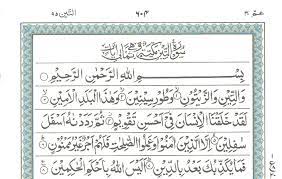 عم ٣٠ التين ٩٥
سُوْرَةُ التِّيْنِ مَكِّيَّةٌ وَهِيَ ثَمَانِي اٰيَاتٍ
بِسْمِ اللهِ الرَّحْمٰنِ الرَّحِيْمِ
وَالتِّيْنِ وَالزَّيْتُوْنِ ۝ وَطُوْرِ سِيْنِيْنَ ۝ وَهٰذَا الْبَلَدِ الْاَمِيْنِ ۝
لَقَدْ خَلَقْنَا الْاِنْسَانَ فِيْ اَحْسَنِ تَقْوِيْمٍ ۝ ثُمَّ رَدَدْنٰهُ اَسْفَلَ
سٰفِلِيْنَ ۝ اِلَّا الَّذِيْنَ اٰمَنُوْا وَعَمِلُوا الصّٰلِحٰتِ فَلَهُمْ اَجْرٌ غَيْرُ مَمْنُوْنٍ ۝
فَمَا يُكَذِّبُكَ بَعْدُ بِالدِّيْنِ ۝ اَلَيْسَ اللهُ بِاَحْكَمِ الْحٰكِمِيْنَ ۝